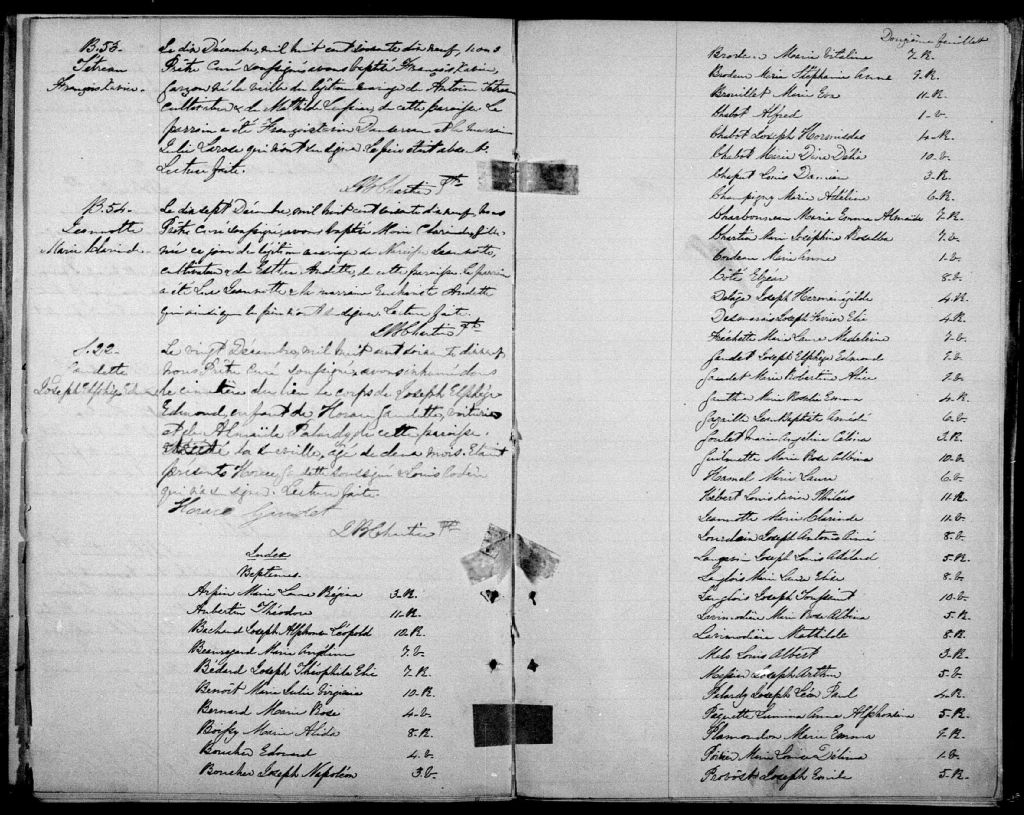 B.53.
Tétreau
François Xavier.
Le dix Décembre, mil huit cent soixante dix neuf, nous
Prêtre Curé soussigné, avons baptisé François Xavier,
garçon né la veille du légitime mariage de Antoine Tétreau
cultivateur & de Mathilde de cette paroisse. Le
parrain a été François Xavier et la marraine
Julie Larose qui n'ont su signer. Le père était absent.
Lecture faite.
J.B. Chartier Ptre
B.54.
Jeannotte
Marie Clarinde.
Le dix sept Décembre, mil huit cent soixante dix neuf, Nous
Prêtre Curé soussigné, avons baptisé Marie Clarinde, fille
née ce jour du légitime mariage de Narcisse Jeannotte,
cultivateur & de Esther Audette, de cette paroisse. Le parrain
a été Luc Jeannotte & la marraine Audette
qui ainsi que le père n'ont su signer. Lecture faite.
J.B. Chartier Ptre
S.22.
Gaudette
Joseph Elphége Edmond
Le vingt Décembre, mil huit cent soixante dix neuf
nous, Prêtre Curé soussigné, avons inhumé dans
le cimetière du lieu le corps de Joseph Elphége
Edmond, enfant de Horace Gaudette, voiturier
et de Almaïde Palardy de cette paroisse.
décédé la surveille, âgé de deux mois. Etaient
présents Horace Gaudette soussigné & Louis
qui n'a su signer. Lecture faite.
Horace Gaudet
J.B. Chartier Ptre
Index
Baptêmes.
Arpin Marie Laure Régina 3-R.
Aubertin Théodore 11-R.
Bachand Joseph Alphonse Léopold 10-R.
Beauregard Marie 7-V.
Bédard Joseph Théophile Elie 7-R.
Benoît Marie Julie Virginie 10-R.
Bernard Marie Rose 4-V.
Marie Alida 8-R.
Boucher Edouard 4-V.
Boucher Joseph Napoléon 3-V.
Douzième feuillet
Brodeur Marie Vitaline 7-R.
Brodeur Marie Stéphanie Anna 9-R.
Brouillet Marie Eva 11-R.
Chabot Alfred 1-V.
Chabot Joseph Hormisdas 4-R.
Chabot Marie Dina Délia 10-V.
Chaput Louis Damien 3-R.
Champigny Marie Adélina 6-R.
Charbonneau Marie Emma Almaïde 7-R.
Chartier Marie Joséphine Rosalba 7-V.
Marie Anna 1-V.
Côté Elzéar 8-V.
Delâge Joseph Herménégilde 4-R.
Desmarais Joseph Ferrier Elie 4-R.
Fréchette Marie Laura Madeleine 7-V.
Gaudet Joseph Elphége Edmond 7-V.
Gaudet Marie Robertine Alice 7-V.
Gauthier Marie Rosalie Emma 4-R.
Jean Baptiste Amédé 6-V.
Goulet Marie Angélina Célina 3-R.
Guilmette Marie Rose Albina 10-V.
Marie Laura 6-V.
Hébert Louis Philéas 11-R.
Jeannotte Marie Clarinde 11-V.
Joseph Antonio 8-V.
Langevin Joseph Louis Adélard 5-R.
Langlois Marie Laure Elise 8-V.
Langlois Joseph Toussaint 10-V.
Larivodière Marie Rose Albina 5-R.
Larivodière Mathilde 8-R.
Louis Albert 3-R.
Messier Joseph Arthur 5-V.
Palardy Joseph Léon Paul 4-R.
Paquette Anna Alphonsine 5-R.
Plamondon Marie Emma 9-R.
Poirier Marie Louise Délima 1-V.
Provôst Joseph Emile 5-R.